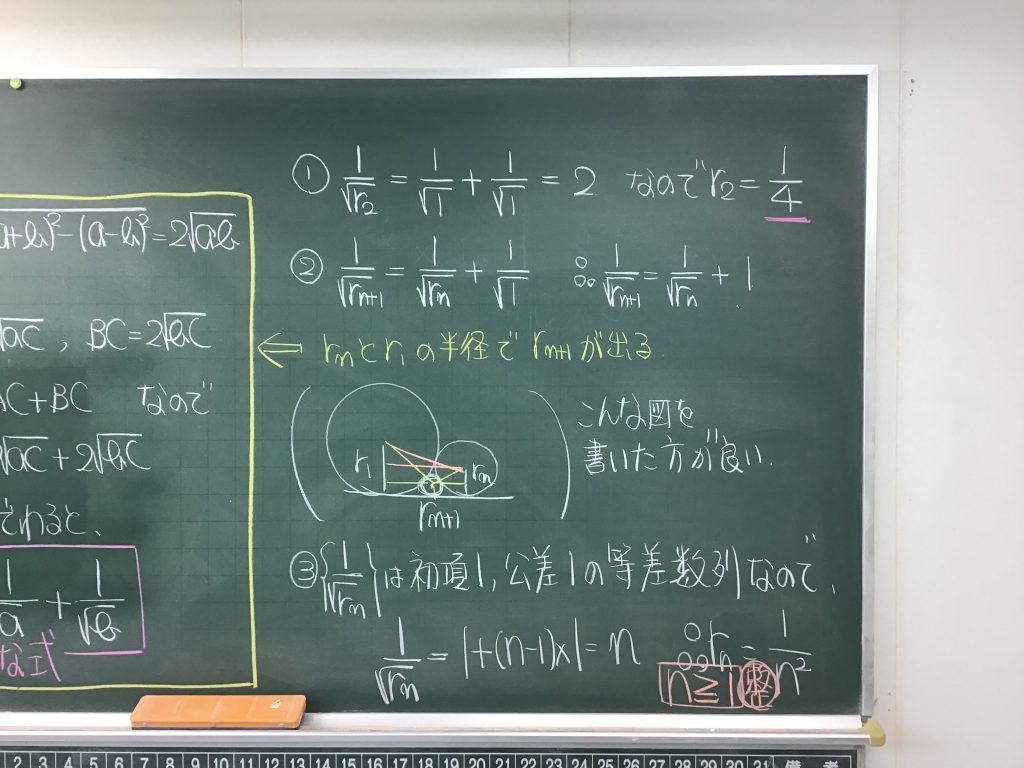 a+b)²-(a-b)² = 2√ab
√ac , BC=2√bc
AC+BC なので
√ac + 2√bc
でわると、
1/√a + 1/√b
な式
① 1/√r₂ = 1/√1 + 1/√1 = 2 なので r₂ = 1/4
② 1/√rₙ₊₁ = 1/√rₙ + 1/√1 ∴ 1/√rₙ₊₁ = 1/√rₙ + 1
⇐ rₙとr₁の半径で rₙ₊₁が出る
r₁ rₙ
rₙ₊₁
こんな図を
書いた方が良い.
③ {1/√rₙ}は初項1, 公差1の等差数列なので,
1/√rₙ = 1+(n-1)×1 = n ∴ rₙ = 1/n²
n≧1 整
2 3 4 5 6 7 8 9 10 11 12 13 14 15 16 17 18 19 20 21 22 23 24 25 26 27 28 29 30 31 備考